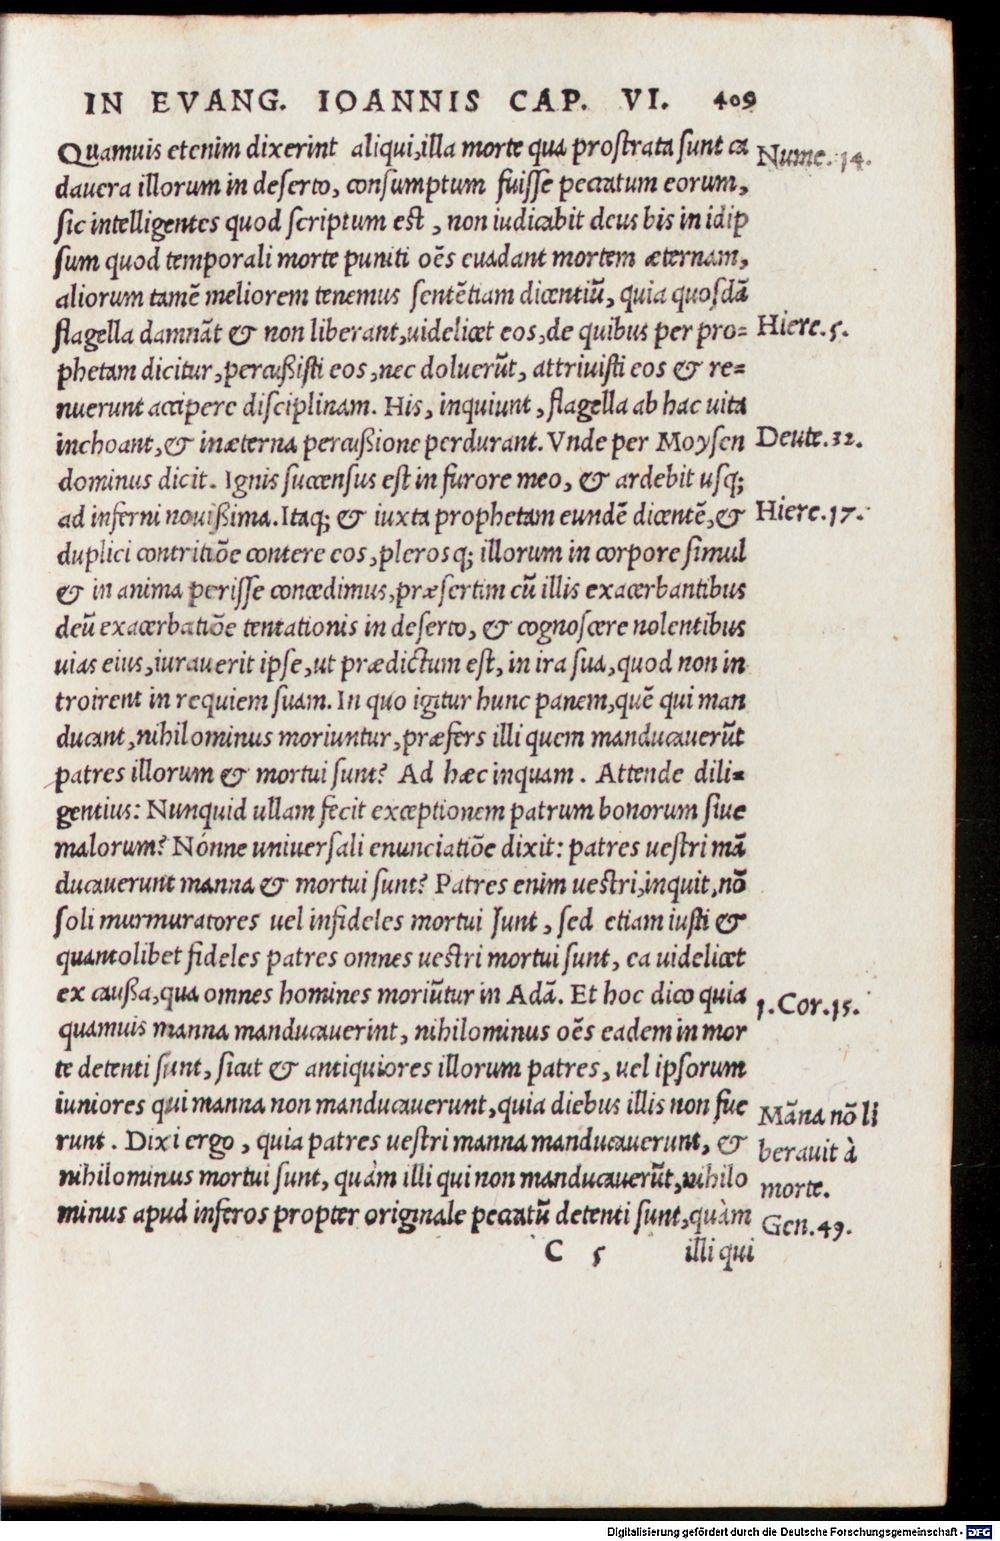 IN EVANG. IOANNIS CAP. VI. 409
Quamuis etenim dixerint aliqui, illa morte qua prostrata sunt ca
Nume. 14.
dauera illorum in deserto, consumptum fuisse peccatum eorum,
sic intelligentes quod scriptum est, non iudicabit deus bis in idip
sum quod temporali morte puniti oēs euadant mortem æternam,
aliorum tamē meliorem tenemus sentētiam dicentiū, quia quosdā
flagella damnāt & non liberant, uidelicet eos, de quibus per pro=
Hiere. 5.
phetam dicitur, percußisti eos, nec doluerūt, attriuisti eos & re=
nuerunt accipere disciplinam. His, inquiunt, flagella ab hac uita
inchoant, & in æterna percußione perdurant. Vnde per Moysen
Deute. 32.
dominus dicit. Ignis succensus est in furore meo, & ardebit usq;
ad inferni nouißima. Itaq; & iuxta prophetam eundē dicentē, &
Hiere. 17.
duplici contritiōe contere eos, plerosq; illorum in corpore simul
& in anima perisse concedimus, præsertim cū illis exacerbantibus
deū exacerbatiōe tentationis in deserto, & cognoscere nolentibus
uias eius, iurauerit ipse, ut prædictum est, in ira sua, quod non in
troirent in requiem suam. In quo igitur hunc panem, quē qui man
ducant, nihilominus moriuntur, præfers illi quem manducauerūt
patres illorum & mortui sunt? Ad hæc inquam. Attende dili=
gentius: Nunquid ullam fecit exceptionem patrum bonorum siue
malorum? Nónne uniuersali enunciatiōe dixit: patres uestri mā
ducauerunt manna & mortui sunt? Patres enim uestri, inquit, nō
soli murmuratores uel infideles mortui sunt, sed etiam iusti &
quantolibet fideles patres omnes uestri mortui sunt, ea uidelicet
ex caußa, qua omnes homines moriūtur in Adā. Et hoc dico quia
1. Cor. 15.
quamuis manna manducauerint, nihilominus oēs eadem in mor
te detenti sunt, sicut & antiquiores illorum patres, uel ipsorum
iuniores qui manna non manducauerunt, quia diebus illis non fue
Māna nō li
runt. Dixi ergo, quia patres uestri manna manducauerunt, &
berauit à
nihilominus mortui sunt, quàm illi qui non manducauerūt, nihilo
morte.
minus apud inferos propter originale peccatū detenti sunt, quàm
Gen. 49.
C 5 illi qui
Digitalisierung gefördert durch die Deutsche Forschungsgemeinschaft - DFG